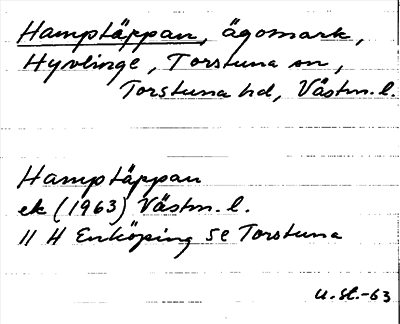 Hamptäppan, ägomark,
Hyvlinge, Torstuna sn,
Torstuna hd, Västm. l.
Hamptäppan
ek (1963) Västm. l.
11 H Enköping SE Torstuna
U.St.-63